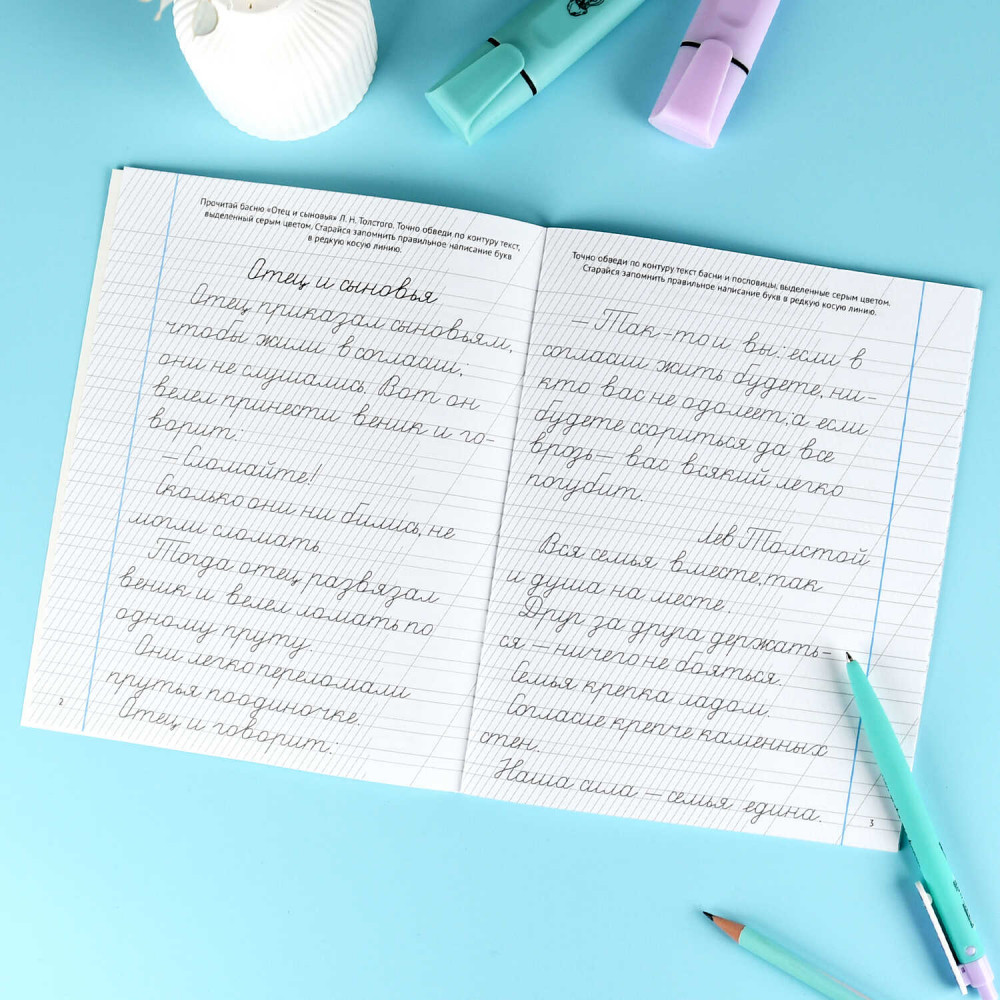 Прочитай басню «Отец и сыновья» Л. Н. Толстого. Точно обведи по контуру текст,
выделенный серым цветом. Старайся запомнить правильное написание букв
в редкую косую линию.
Отец и сыновья
Отец приказал сыновьям,
чтобы жили в согласии;
они не слушались. Вот он
велел принести веник и го-
ворит:
– Сломайте!
Сколько они ни бились, не
могли сломать.
Тогда отец развязал
веник и велел ломать по
одному пруту.
Они легко переломали
прутья поодиночке.
Отец и говорит:
2
Точно обведи по контуру текст басни и пословицы, выделенные серым цветом.
Старайся запомнить правильное написание букв в редкую косую линию.
– Так-то и вы: если в
согласии жить будете, ни-
кто вас не одолеет; а если
будете ссориться да все
врозь – вас всякий легко
погубит.
Лев Толстой
Вся семья вместе, так
и душа на месте.
Друг за друга держать-
ся – ничего не бояться.
Семья крепка ладом.
Согласие крепче каменных
стен.
Наша сила – семья едина.
3